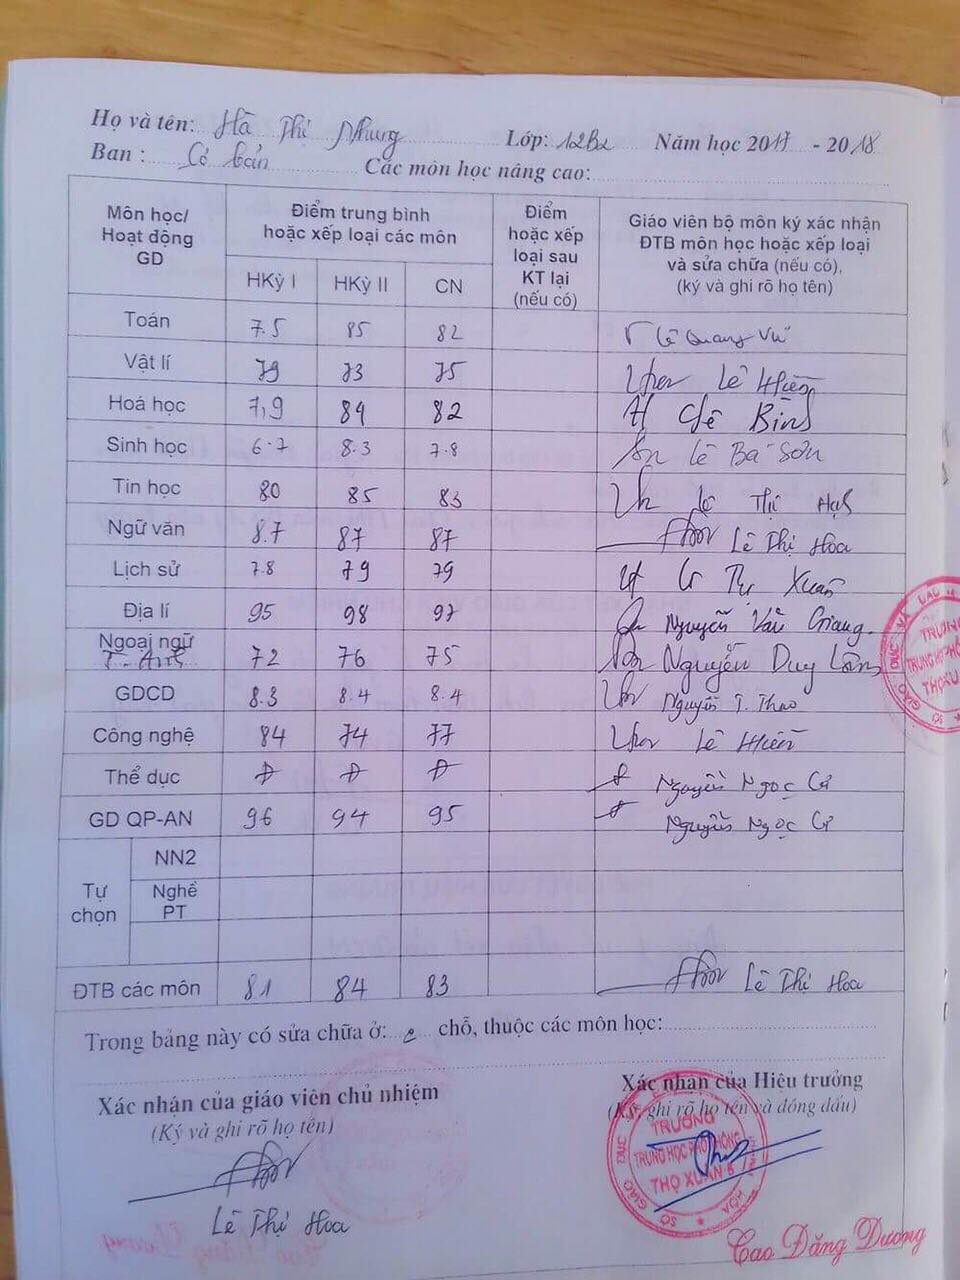 Họ và tên: Hà Thị Nhung Lớp: 12B2 Năm học 2017 - 2018
Ban : Cơ bản Các môn học nâng cao:
Môn học/ Hoạt động GD Điểm trung bình hoặc xếp loại các môn Điểm hoặc xếp loại sau KT lại (nếu có) Giáo viên bộ môn ký xác nhận ĐTB môn học hoặc xếp loại và sửa chữa (nếu có), (ký và ghi rõ họ tên)
HKỳ I HKỳ II CN
Toán 7.5 85 82 Lê Quang Vũ
Vật lí 79 73 75 Lê Hiền
Hoá học 7,9 84 82
Sinh học 6.7 8.3 7.8 Lê Bá Sơn
Tin học 80 85 83 Lê Thị
Ngữ văn 8.7 87 87 Lê Thị Hoa
Lịch sử 7.8 79 79 Xuân
Địa lí 95 98 97 Nguyễn Văn Giang
Ngoại ngữ
T. Anh 72 76 75 Nguyễn Duy Lâm
GDCD 8.3 8.4 8.4 Nguyễn T. Thao
Công nghệ 84 74 77 Lê Hiền
Thể dục Đ Đ Đ Nguyễn Ngọc
GD QP-AN 96 94 95 Nguyễn Ngọc
Tự chọn
NN2
Nghề PT
ĐTB các môn 81 84 83 Lê Thị Hoa
Trong bảng này có sửa chữa ở: chỗ, thuộc các môn học:
Xác nhận của giáo viên chủ nhiệm
(Ký và ghi rõ họ tên)
Lê Thị Hoa
Xác nhận của Hiệu trưởng
(Ký ghi rõ họ tên và đóng dấu)
TRƯỜNG
TRUNG HỌC PHỔ THÔNG
THỌ XUÂN
Cao Đăng Dương